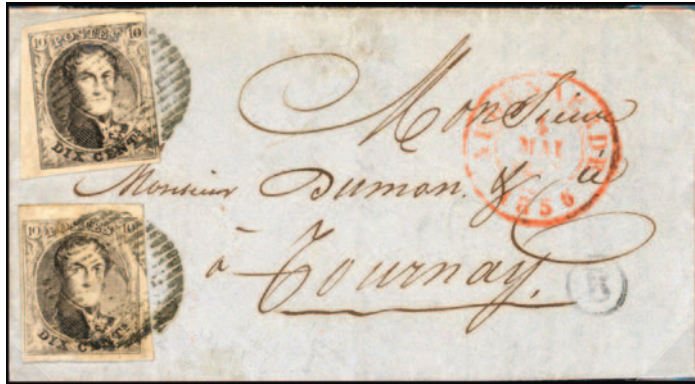 10 POSTES 10
DIX CENTS
10 POSTES 10
DIX CENTS
Monsieur
Monsieur Dumon. &
à Tournay.
MAI
1856
B